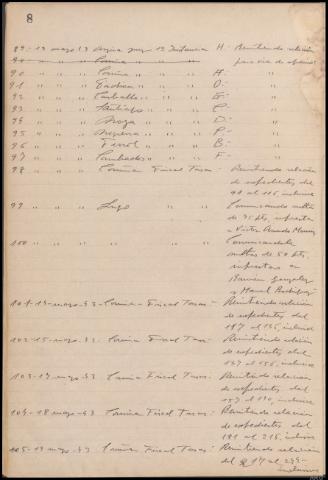 8
89 - 13 mayo 43 Juez 1ª Instancia H:- Remitiendo relación
90 " " " Coruña " "
90 " " " Coruña " " H:-
91 " " " " " O:-
92 " " " Carballo " " G:-
93 " " " Santiago " " C-
94 " " " Noya " " D:-
95 " " " " " P-
96 " " " Ferrol " " B:-
97 " " " Cambados " " F-
98 " " " Coruña Fiscal Tasas- Remitiendo relación
de expedientes del
99 al 116, inclusive
99 " " " Lugo " " Comunicando multa
de 75 pts, impuesta
a Victor
100 " " " " " Comunicandole
multa de 50 pts,
impuestas a
Ramón Gonzalez
y Manuel Rodríguez
101-13-mayo-43-Coruña Fiscal Tasas- Remitiendo relación
de expedientes del
117 al 136, inclusive
102-15-mayo-43 Coruña Fiscal Tasas- Remitiendo relación
de expedientes del
137 al 156, inclusive
103-17-mayo 43 Coruña Fiscal Tasas- Remitiendo relación
de expedientes del
157 al 190, inclusive
104-18-mayo-43 Coruña Fiscal Tasas- Remitiendo relación
de expedientes del
191 al 216, inclusive
105-19-mayo-43 Coruña Fiscal Tasas- Remitiendo relación
del 217 al 233-
inclusive